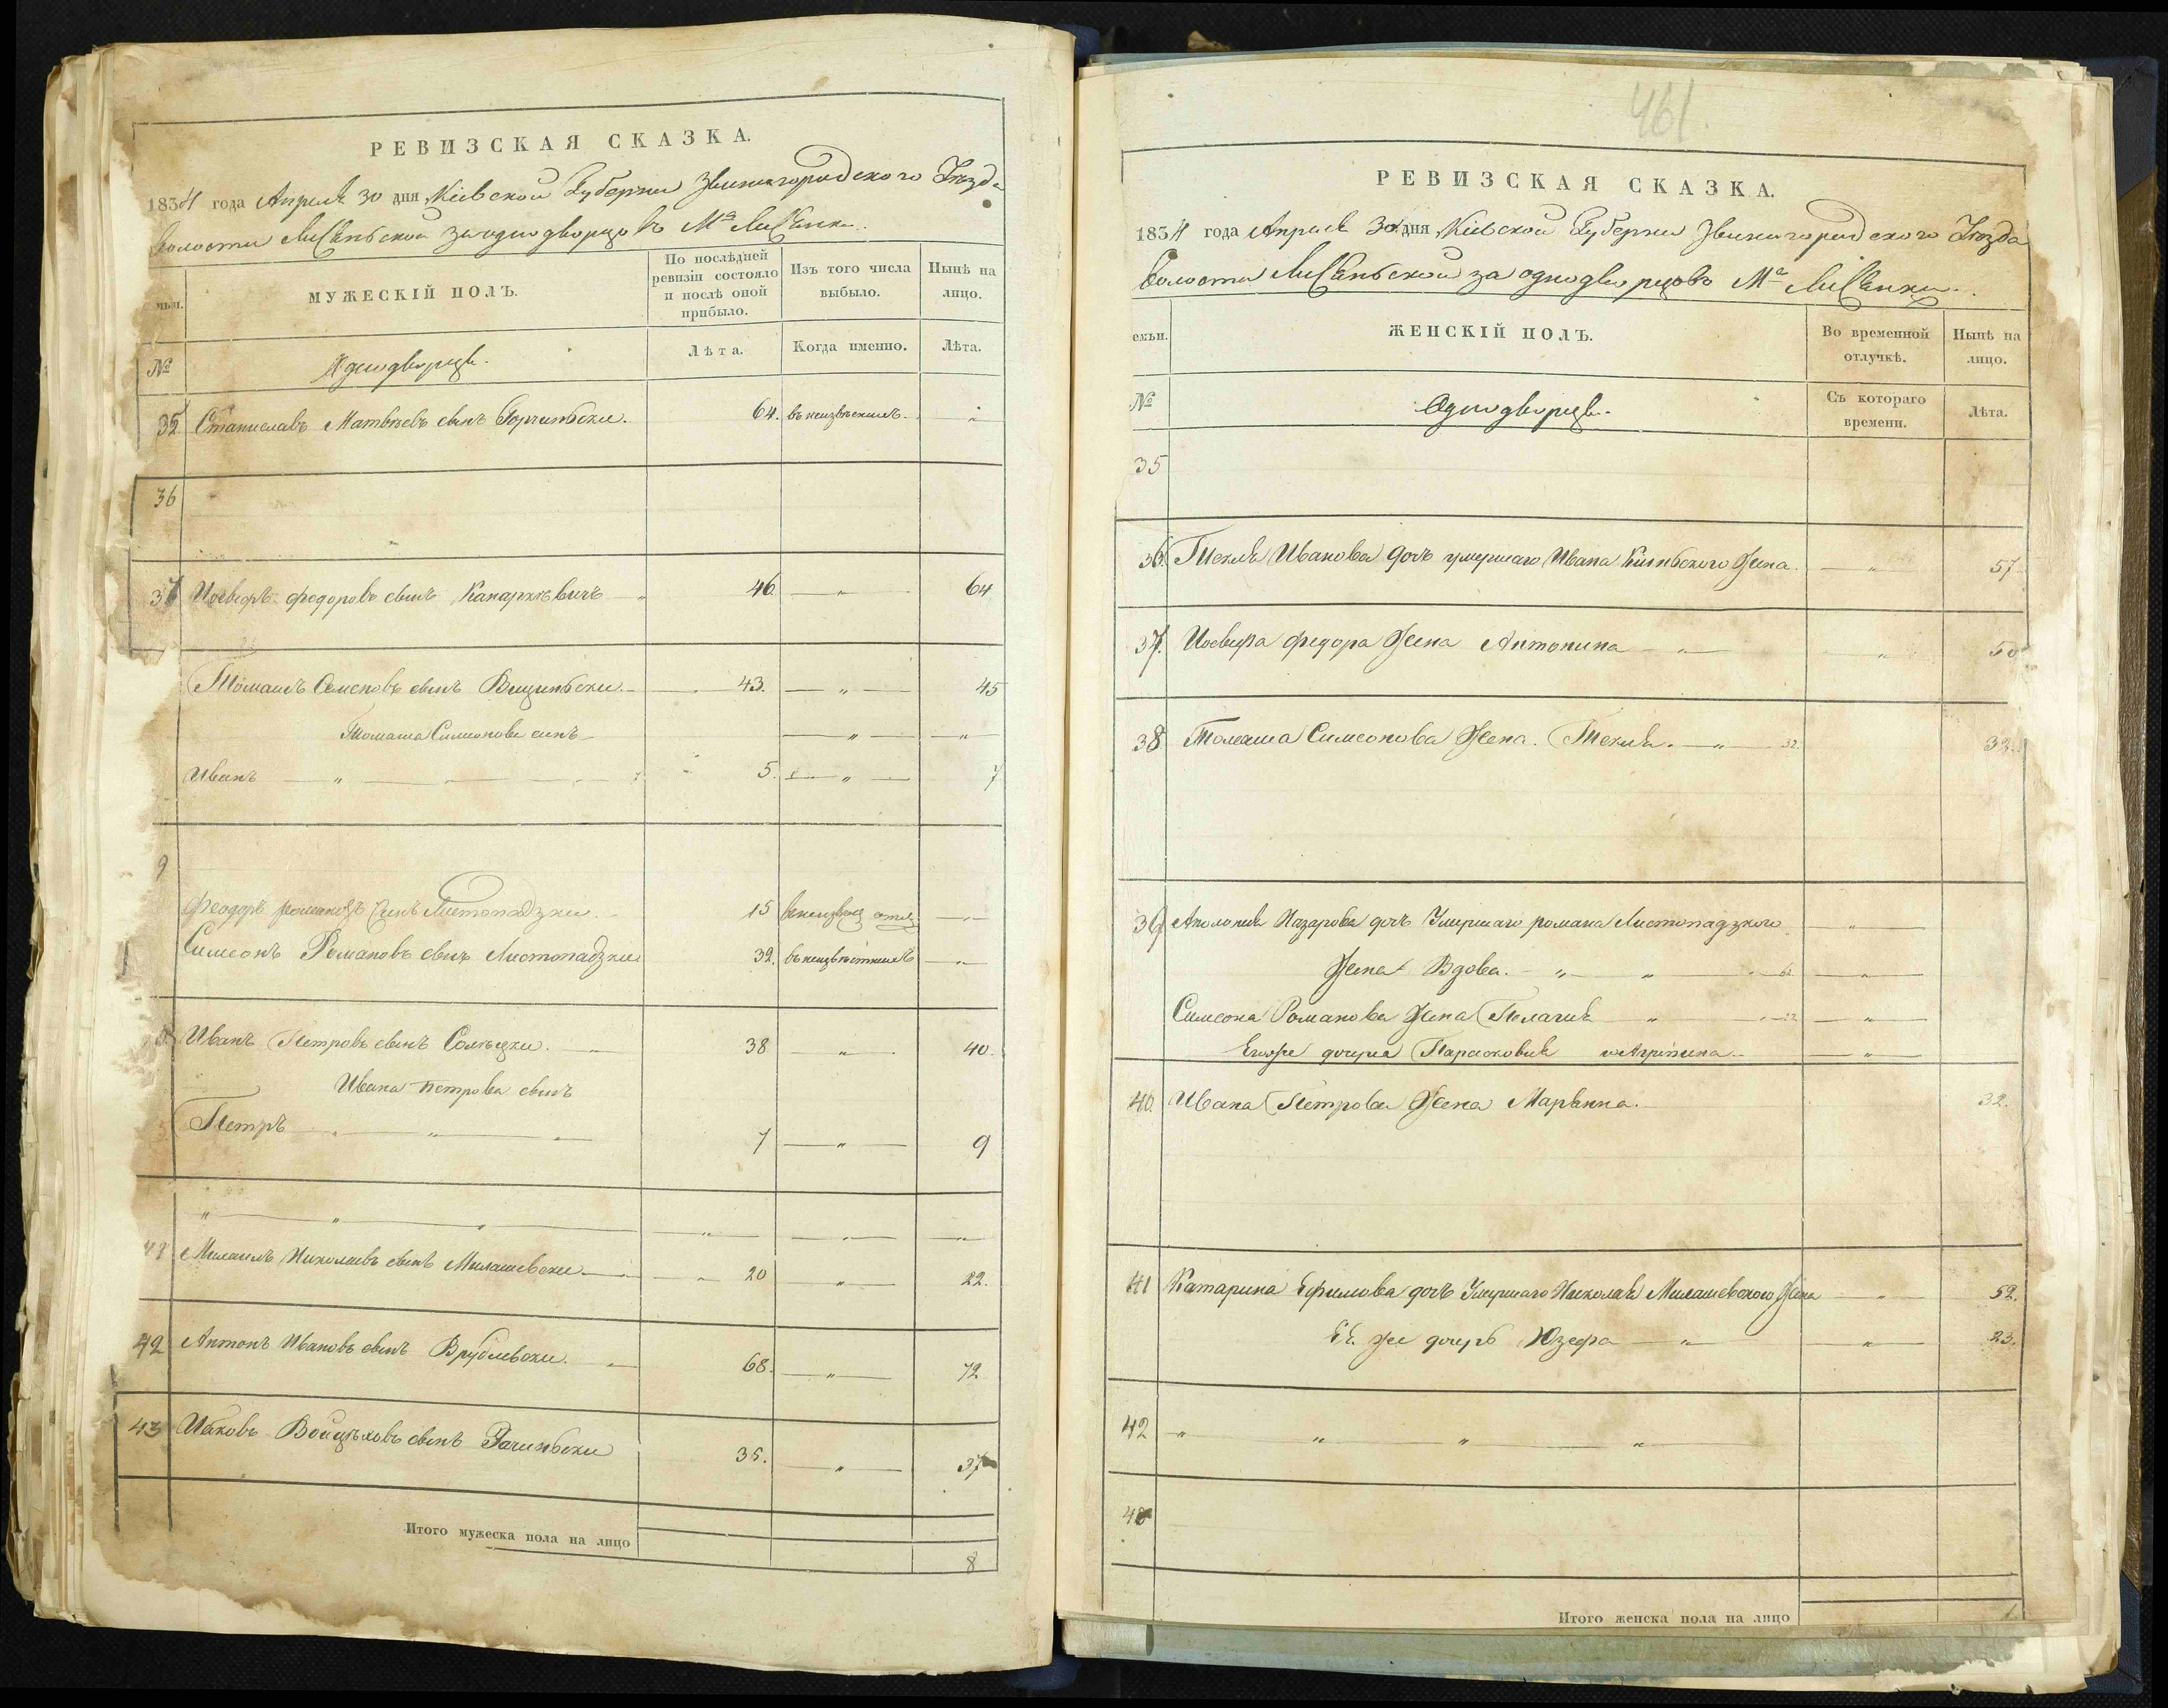 РЕВИЗСКАЯ СКАЗКА.
1834 года Апреля 30 дня Кіевской Губернии Звенигородского Уезда
волости Лисянской за однодворцовъ Мª Лисянки.
мьи.
МУЖЕСКІЙ ПОЛЪ.
По послѣдней ревизіи состояло и послѣ оной прибыло.
Изъ того числа выбыло.
Нынѣ на лицо.
№
Однодворцы.
Лѣта.
Когда именно.
Лѣта.
35 Станиславъ Матвѣевъ сынъ 64.
36
37 Иосифъ Федоровъ сынъ 46 — " — 64
Томашъ Семеновъ сынъ 43. — " — 45
Томаша Симионова сынъ — " — "
Иванъ — " — 5. — " — 7
9
Феодоръ сынъ Листопадзки. 15
Симеонъ Романовъ сынъ Листопадзки 32.
Иванъ Петровъ сынъ 38 — " — 40.
Ивана Петрова сынъ
Петръ — " — 7 — " — 9
" " "
41 Николаевъ сынъ Милашевски 20 — " — 22.
42 Антонъ Ивановъ сынъ Врублевски. 68. — " — 72
43 Яковъ Войцѣховъ сынъ 35. — " — 37
Итого мужеска пола на лицо
8
461.
РЕВИЗСКАЯ СКАЗКА.
1834 года Апреля 30 дня Кіевской Губернии Звенигородского Уезда
волости Лисянской за однодворцовъ Мª Лисянки.
емьи.
ЖЕНСКІЙ ПОЛЪ.
Во временной отлучкѣ.
Нынѣ на лицо.
№
Однодворцы.
Съ котораго времени.
Лѣта.
35
36. Текля Иванова дочь умершаго Ивана жена. — " — 57
37. Иосифа Федора жена Антонина — " — " 50
38 Томаша Симеонова жена. Текля. — " — 32. 32.
39 Аполония Назарова дочь Умершаго Романа Листопадзкого — " —
жена Вдова. — " — " — " —
Симеона Романова жена Пелагия " — " —
Егоже дочери Парасковия и Агрипина — " —
40. Ивана Петрова жена Марянна. 32.
41 Катарина Ефимова дочь Умершаго Николая Милашевского жена — " — 52.
Её же дочерь Юзефа — " — " — 23.
42 " " " "
43
Итого женска пола на лицо